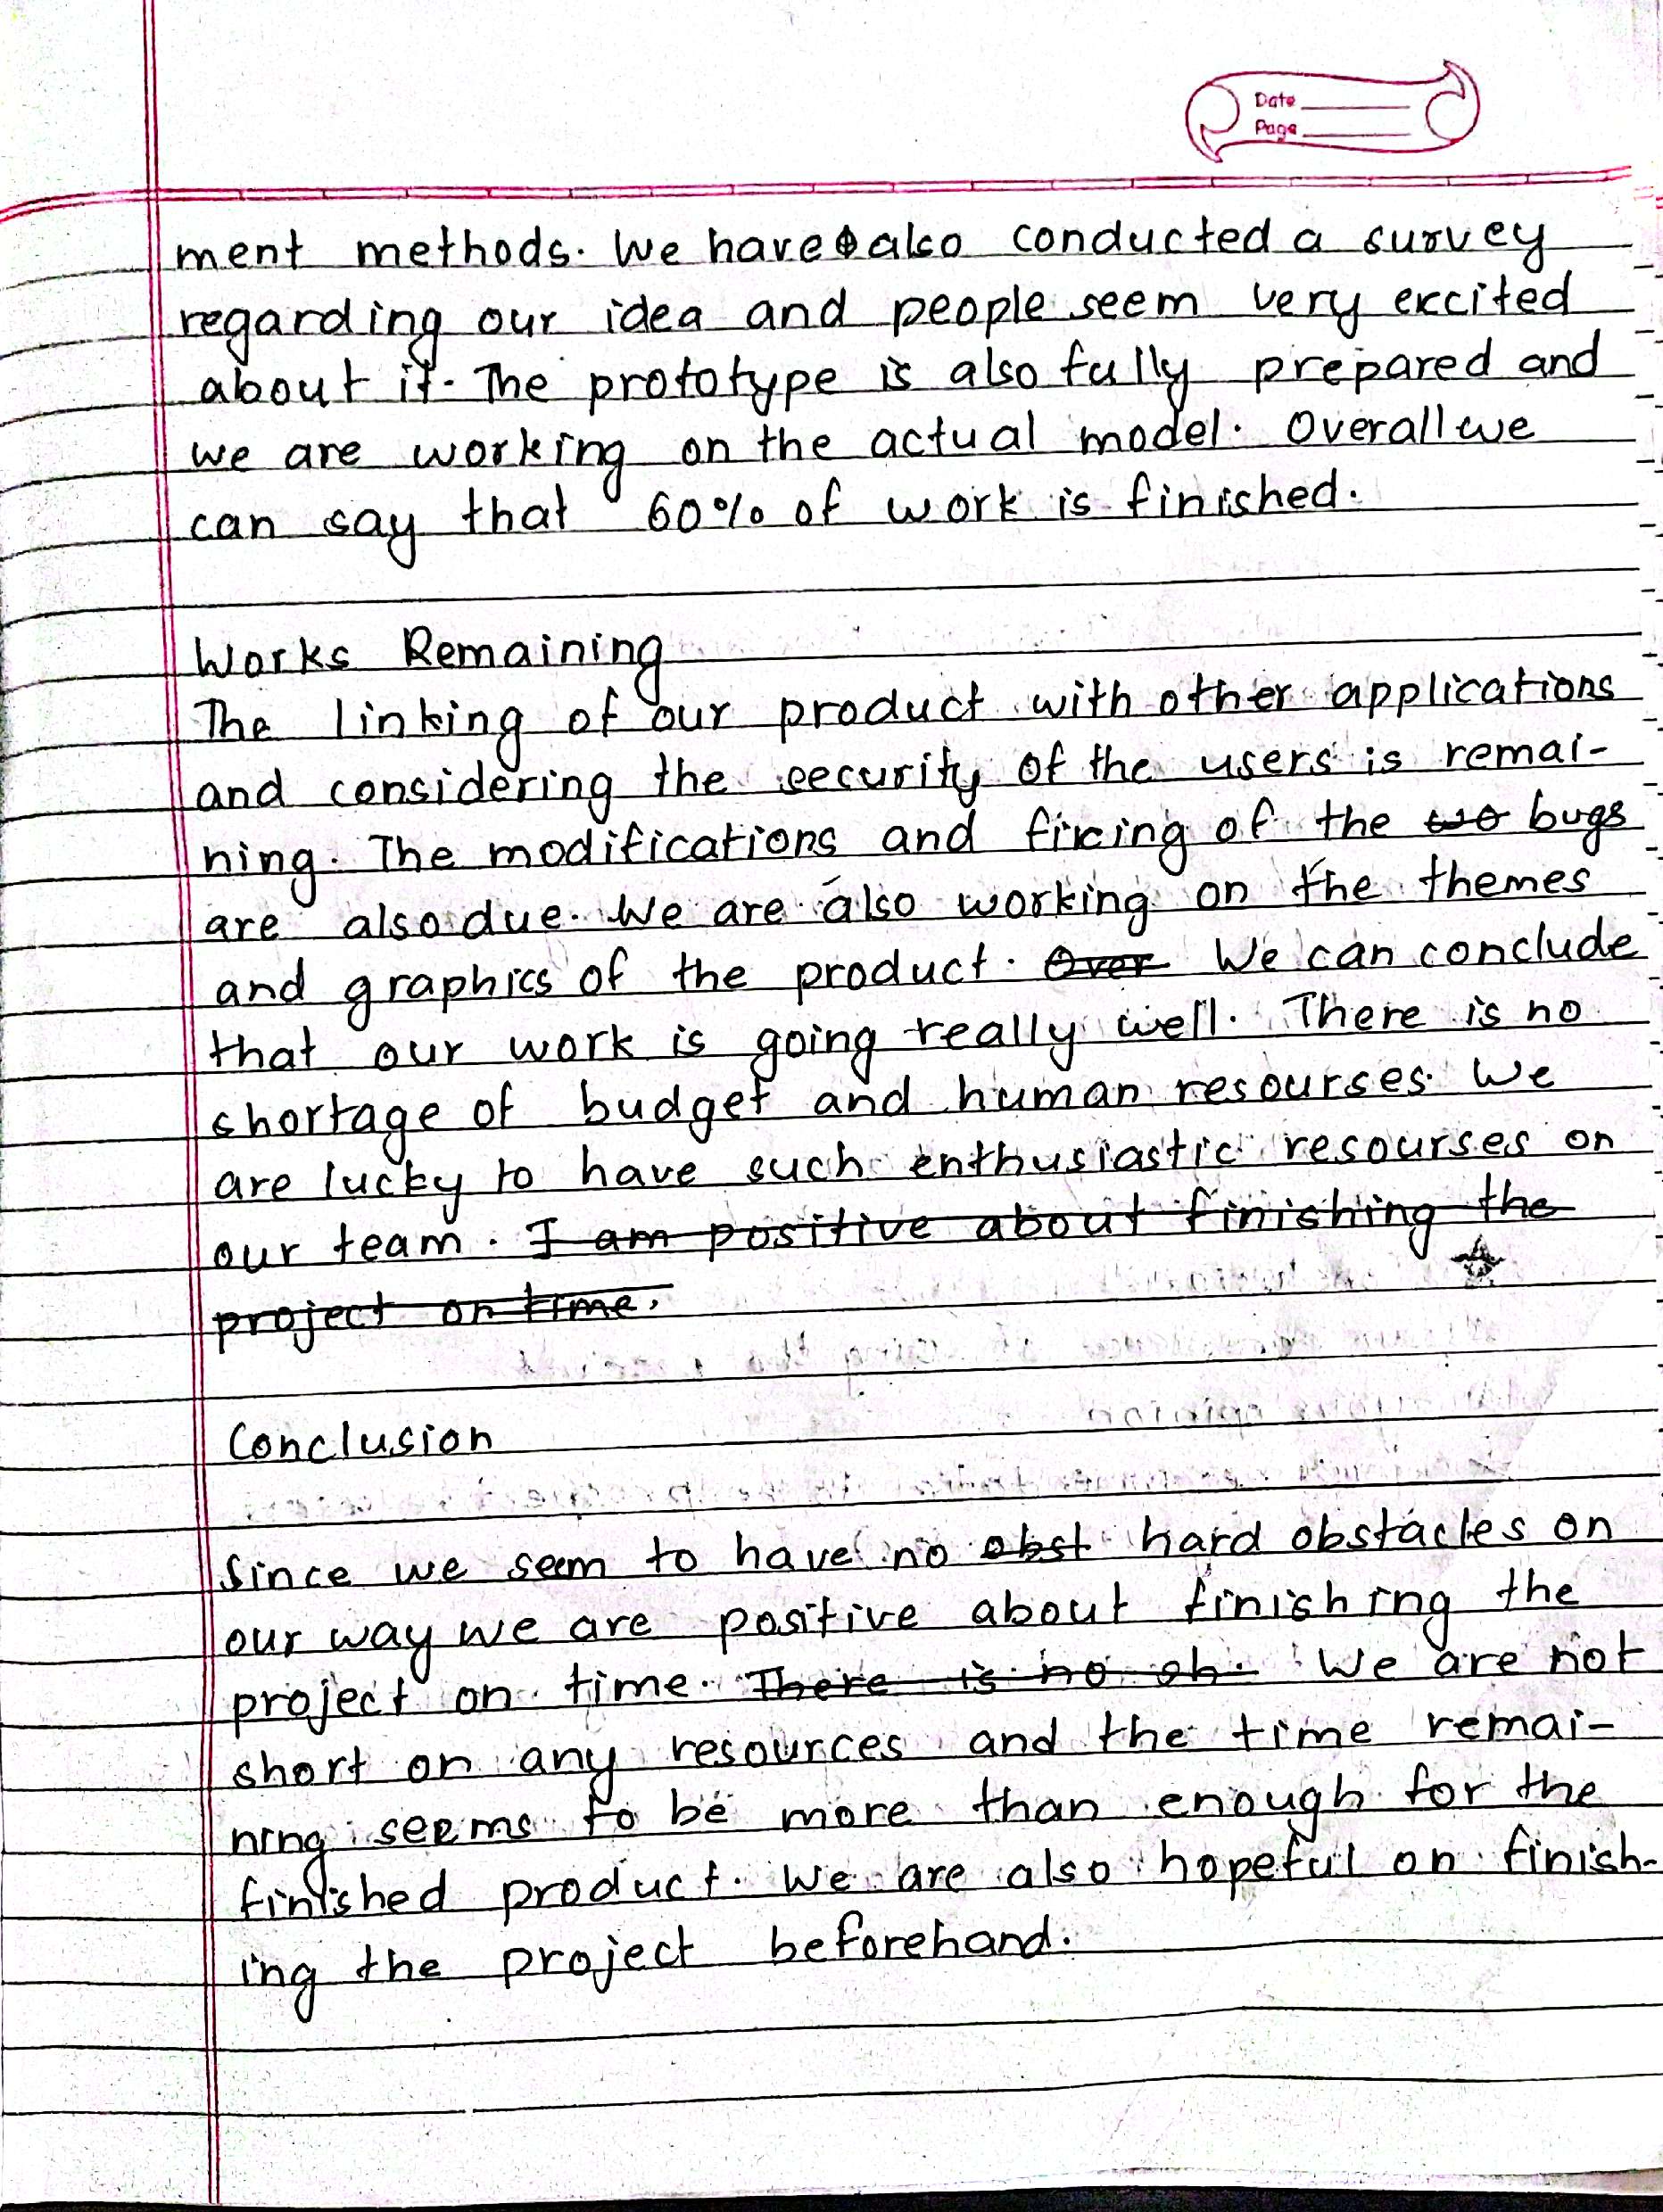 Date
Page
ment methods. We have also conducted a survey
regarding our idea and people seem very excited
about it. The prototype is also fully prepared and
we are working on the actual model. Overall we
can say that 60% of work is finished.
Works Remaining
The linking of our product with other applications
and considering the security of the users is remai-
ning. The modifications and fixing of the wo bugs
are also due. We are also working on the themes
and graphics of the product. Over We can conclude
that our work is going really well. There is no
shortage of budget and human resourses. We
are lucky to have such enthusiastic resourses on
our team. I am positive about finishing the
project on time.
Conclusion
Since we seem to have no obst hard obstacles on
our way we are positive about finishing the
project on time. There is no ob. We are not
short on any resources and the time remai-
ning seems to be more than enough for the
finished product. We are also hopeful on finish-
ing the project beforehand.